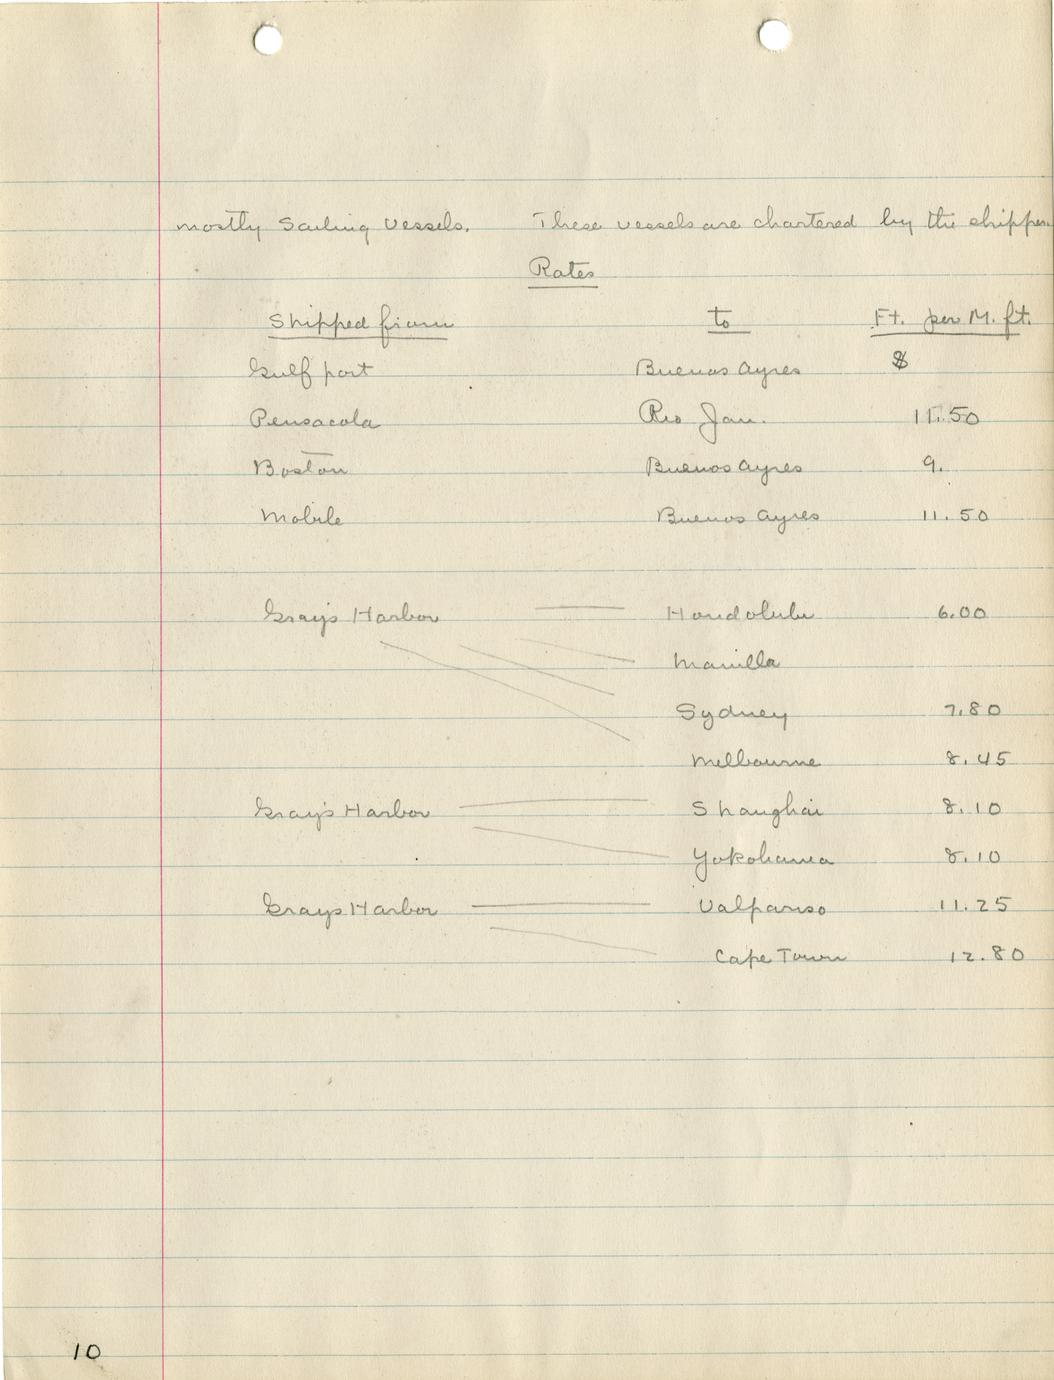 mostly Sailing Vessels. These vessels are chartered by the shipper.
Rates
Shipped from to Ft. per M. ft.
Gulf port Buenos Ayres $
Pensacola Rio Jan. 11.50
Boston Buenos Ayres 9.
Mobile Buenos Ayres 11.50
Gray's Harbor Honolulu 6.00
Manilla
Sydney 7.80
Melbourne 8.45
Gray's Harbor Shanghai 8.10
Yokohama 8.10
Grays Harbor Valpariso 11.25
Cape Town 12.80
10